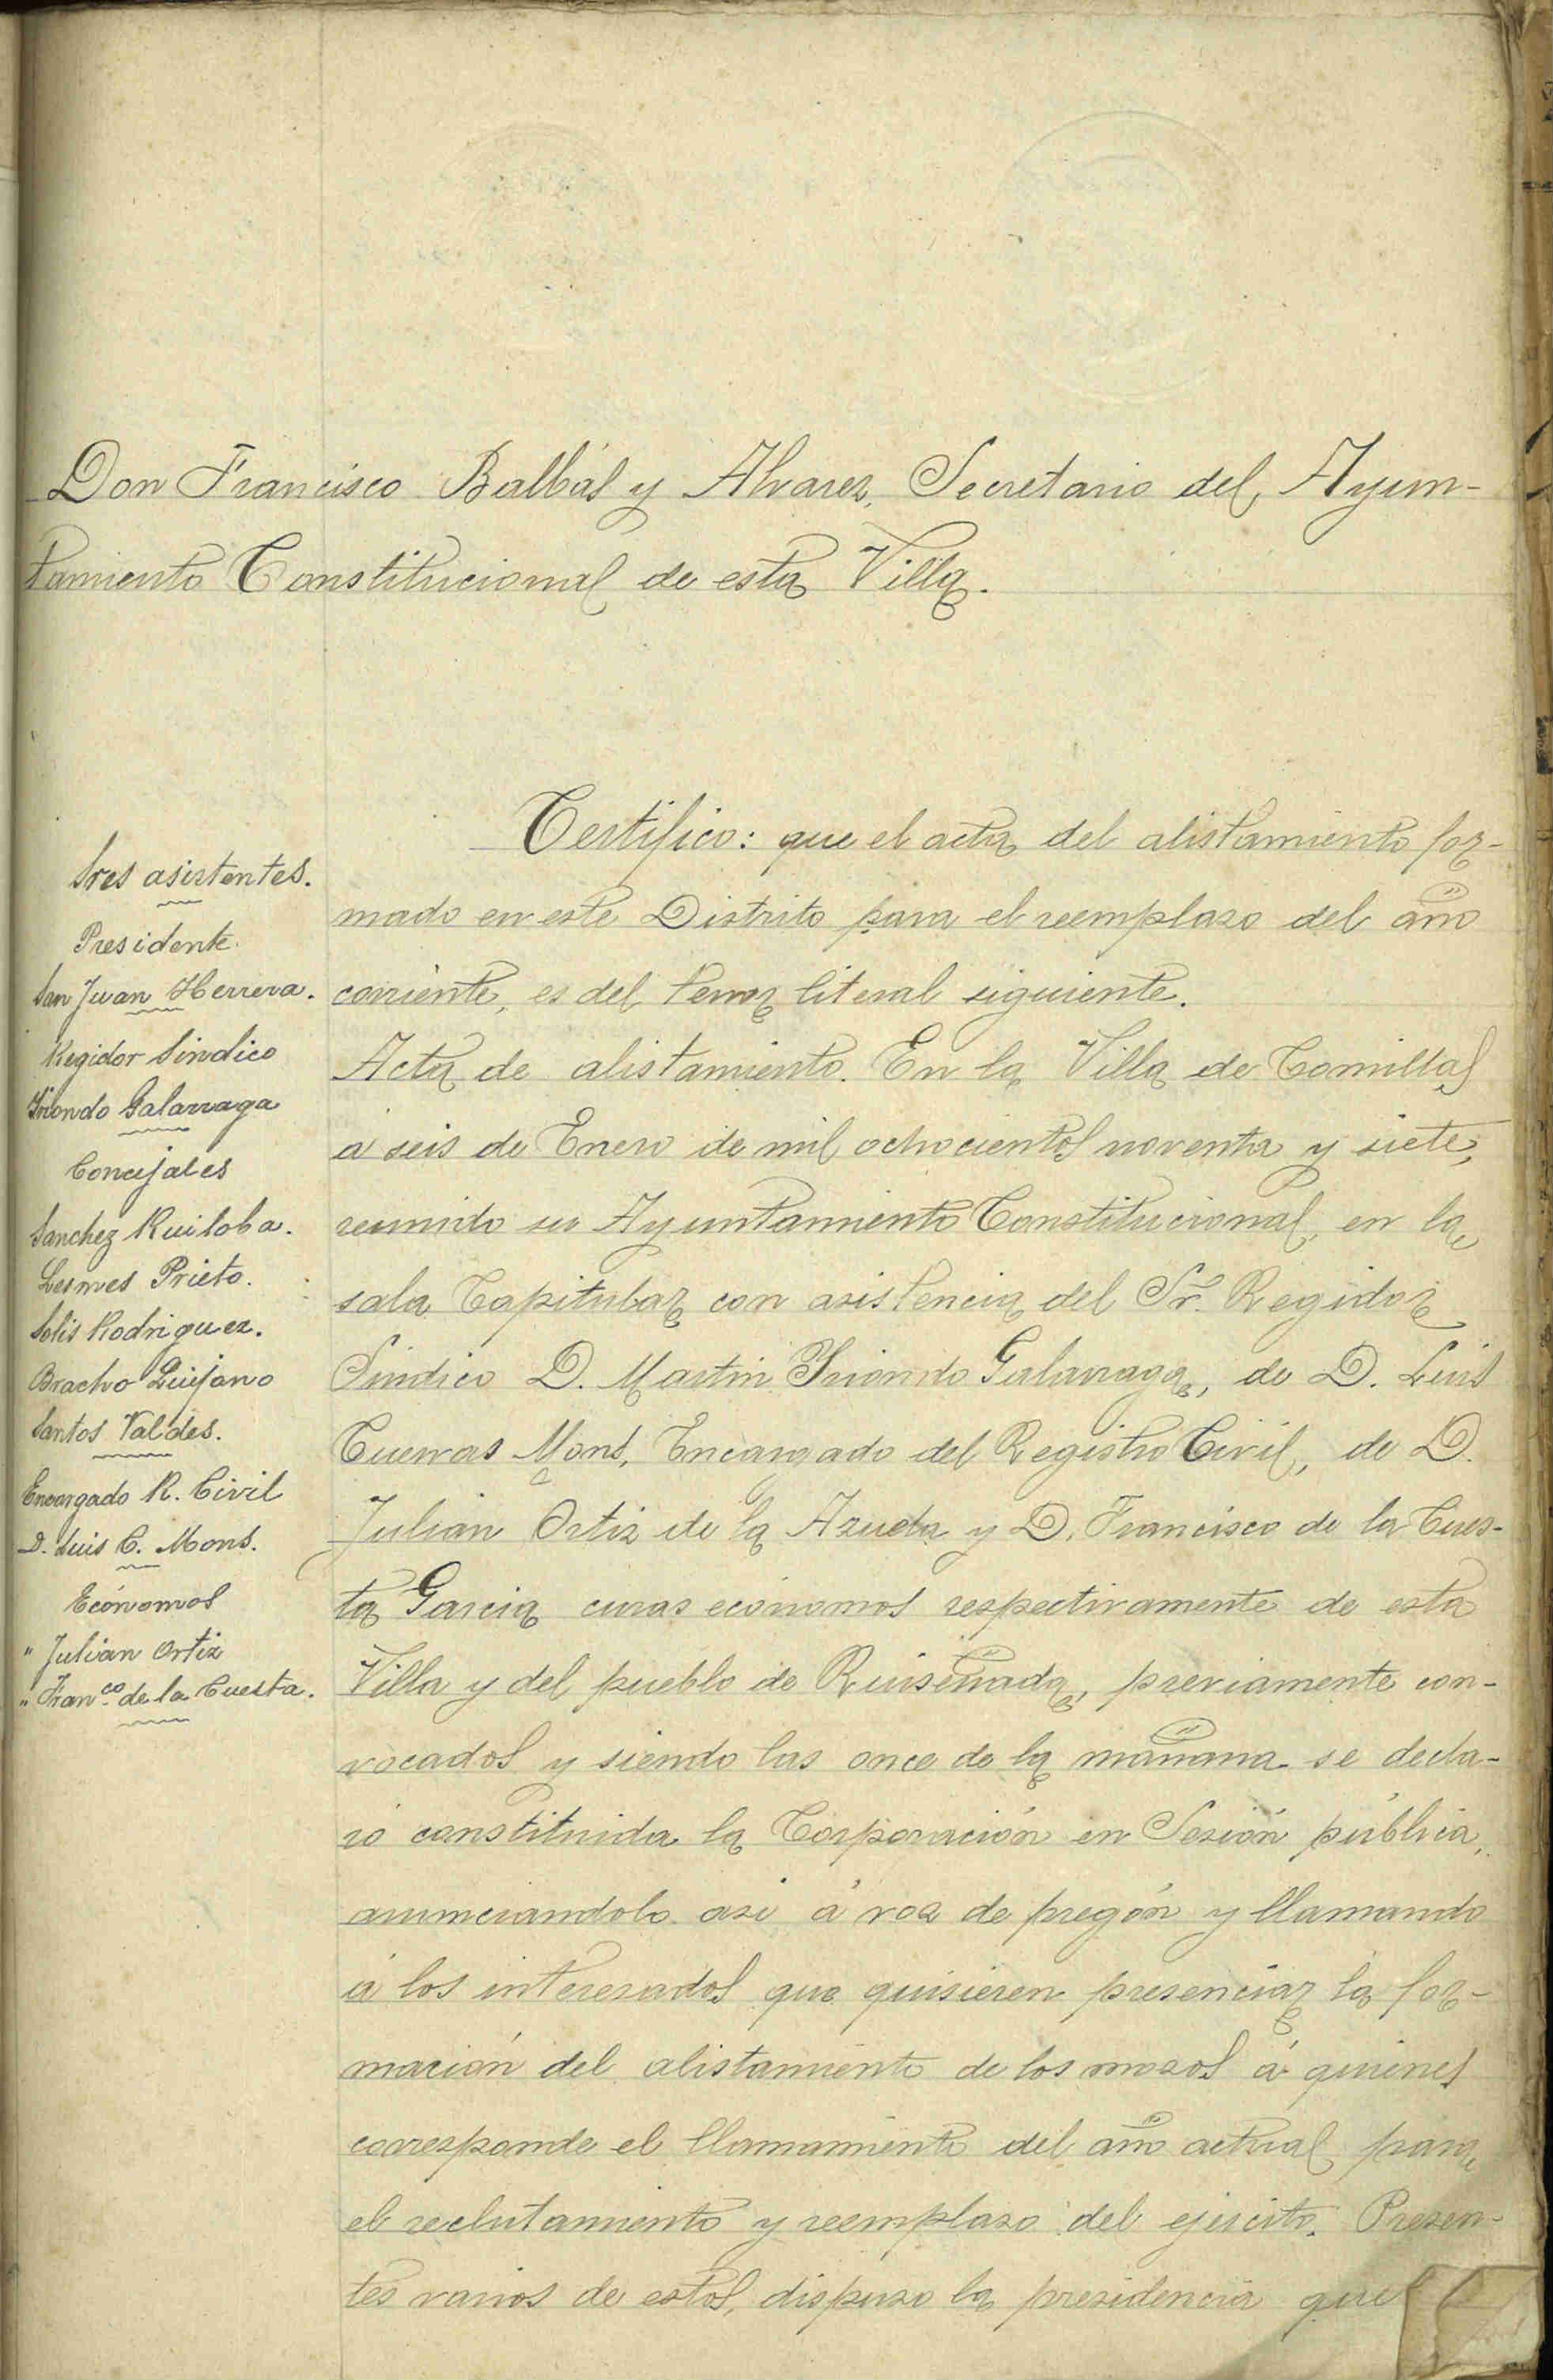 Don Francisco Balbás y Alvarez, Secretario del Ayun-
tamiento Constitucional de esta Villa.
Sres asistentes.
Presidente.
San Juan Herrera.
Regidor Sindico
Yriondo Galarraga
Concejales
Sanchez Ruiloba.
Lesmes Prieto.
Solis Rodriguez.
Bracho Quijano
Santos Valdes.
Encargado R. Civil
D. Luis C. Mons.
Ecónomos
" Julian Ortiz
" Fran.co de la Cuesta.
Certifico: que el acta del alistamiento for-
mado en este Distrito para el reemplazo del año
corriente, es del tenor literal siguiente.
Acta de alistamiento. En la Villa de Comillas
á seis de Enero de mil ochocientos noventa y siete,
reunido su Ayuntamiento Constitucional, en la
sala Capitular con asistencia del Sr. Regidor
Sindico D. Martin Yriondo Galarraga, de D. Luis
Cuevas Mons, Encargado del Registro Civil, de D.
Julián Ortiz de la Azuela y D. Francisco de la Cues-
ta Garcia curas ecónomos respectivamente de esta
Villa y del pueblo de Ruiseñada, previamente con-
vocados y siendo las once de la mañana se decla-
ró constituida la Corporación en Sesión pública,
anunciandolo asi á voz de pregón y llamando
á los interesados que quisieren presenciar la for-
mación del alistamiento de los mozos á quienes
corresponde el llamamiento del año actual para
el reclutamiento y reemplazo del ejército. Presen-
tes varios de estos, dispuso la presidencia que